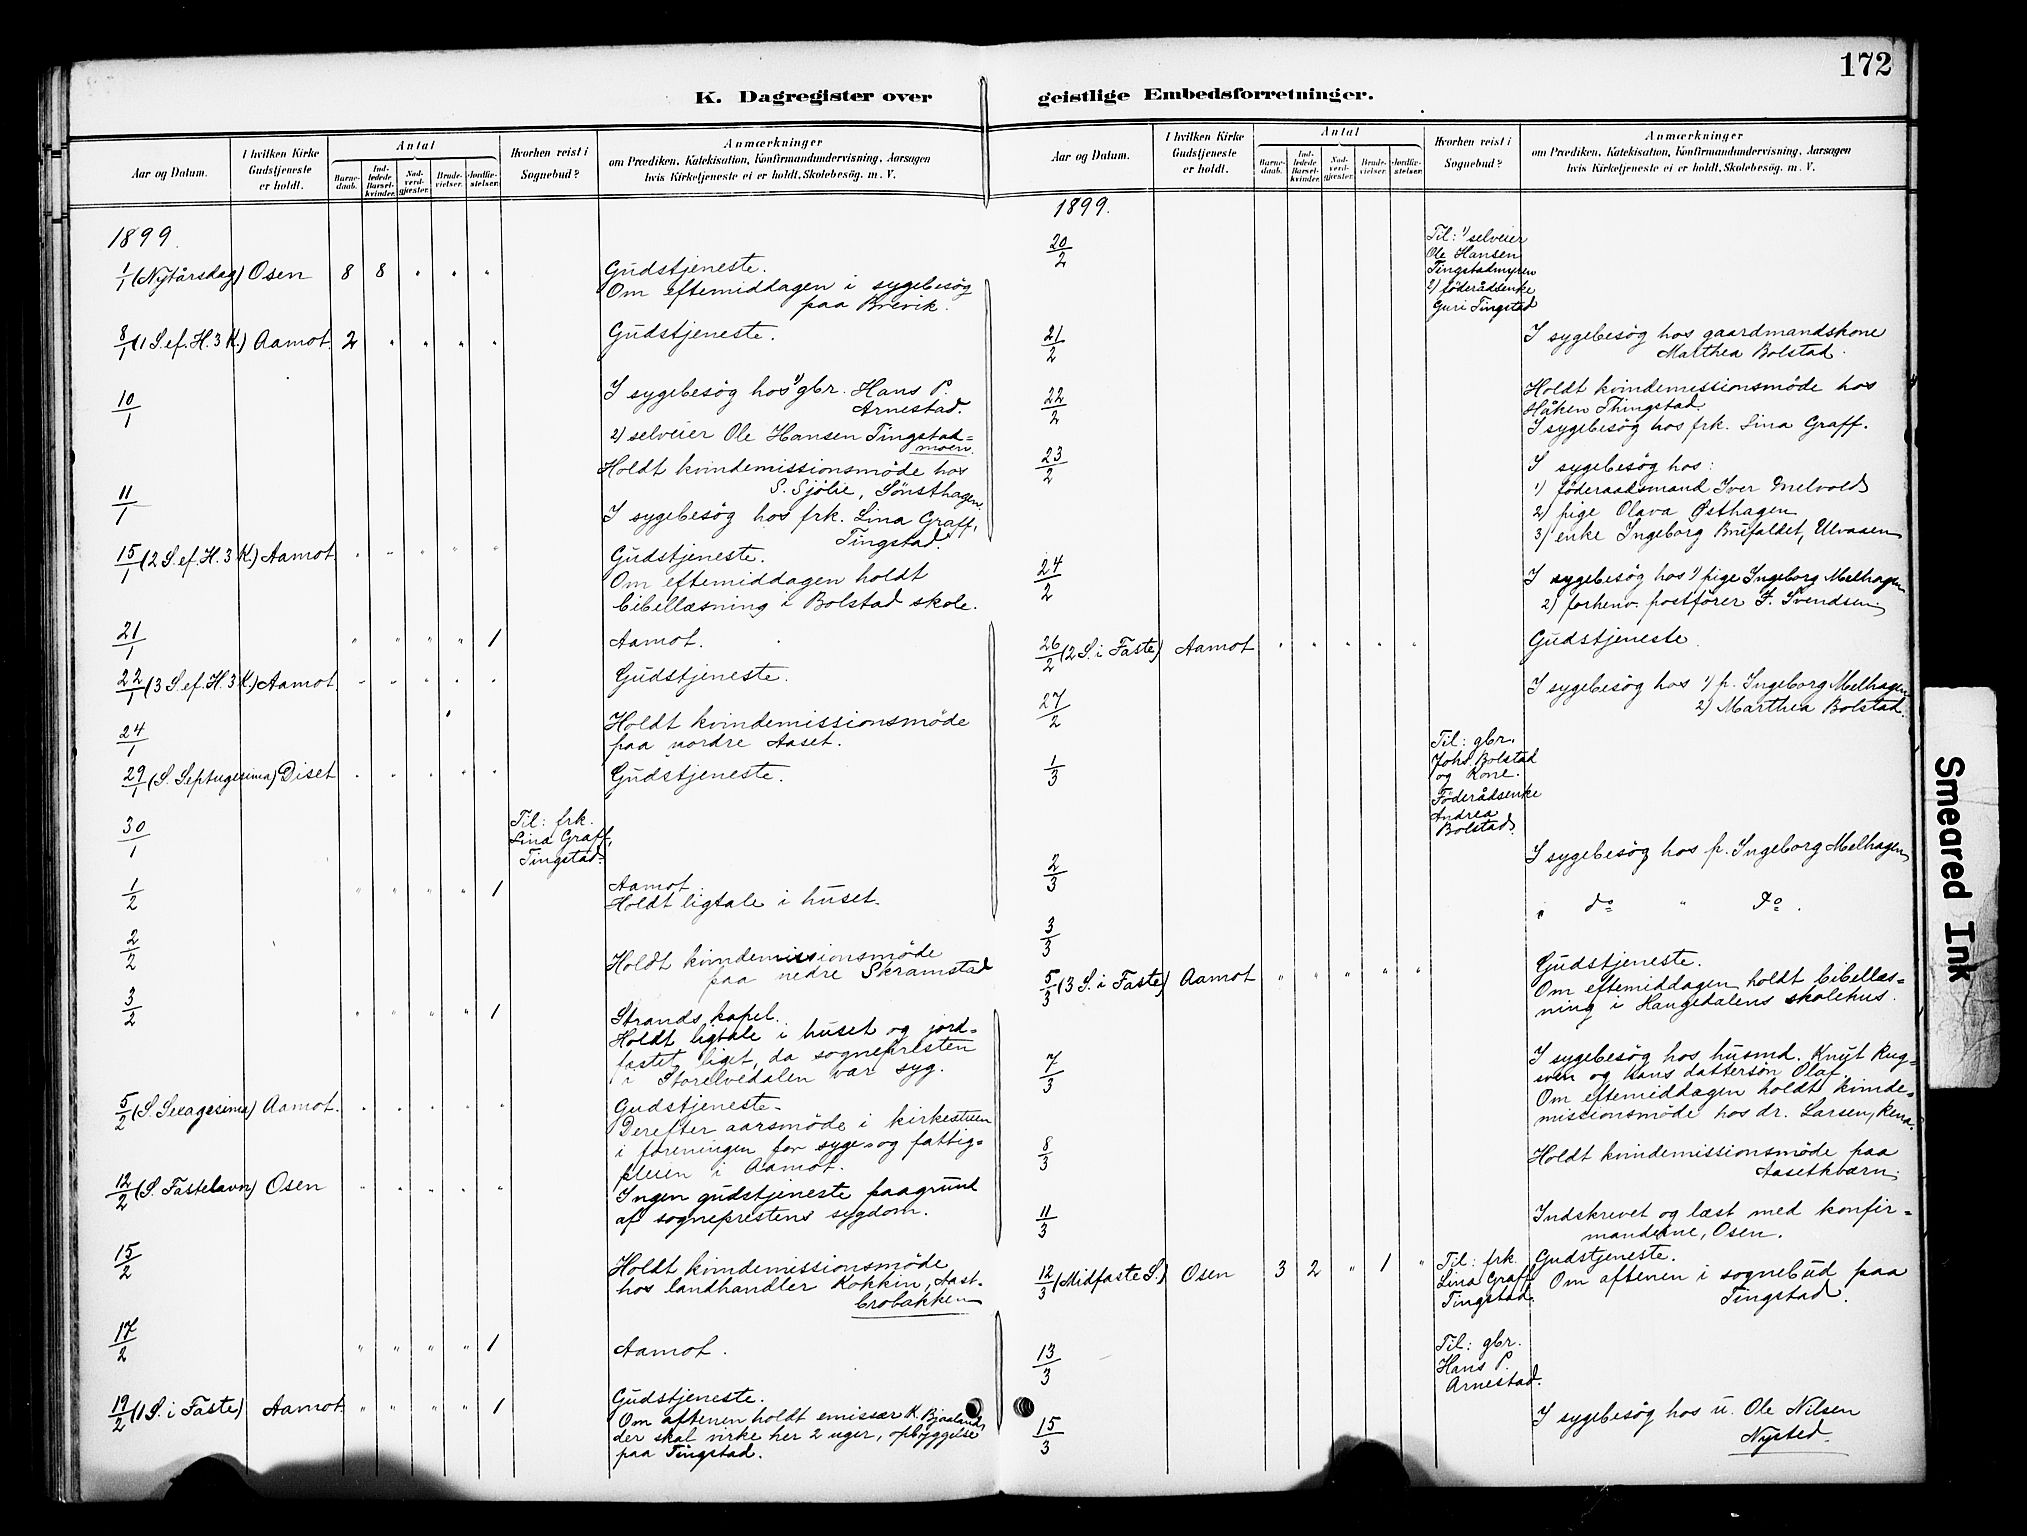 172
K. Dagregister over
Aar og Datum.
I hvilken Kirke Gudstjeneste er holdt.
Antal
Barne-daab.
Ind-ledede Barsel-kvinder.
Nad-verd-gjester.
Brude-vielser.
Jordfæ-stelser.
Hvorhen reist i Sognebud?
Anmærkninger
om Prædiken, Katekisation, Konfirmandundervisning, Aarsagen
hvis Kirketjeneste ei er holdt, Skolebesøg. m. V.
1899.
1/1 (Nytårsdag) Osen 8 8 " " " Gudstjeneste.
Om eftemiddagen i sygebesøg
paa Brevik.
8/1 (1 S. ef. H. 3 K.) Aamot. 2 " " " " Gudstjeneste.
10/1 I sygebesøg hos 1) gbr. Hans P.
Arnestad.
2) selveier Ole Hansen Tingstad=
moen.
11/1 Holdt kvindemissionsmöde hos
S. Sjölie, Sønsthagen.
I sygebesøg hos frk. Lina Graff,
Tingstad.
15/1 (2 S. ef. H. 3 K.) Aamot " " " " " Gudstjeneste.
Om eftemiddagen holdt
bibellæsning i Bolstad skole.
21/1 " " " " 1 Aamot.
22/1 (3 S. ef. H. 3 K.) Aamot. " " " " " Gudstjeneste.
24/1 Holdt kvindemissionsmöde
paa nordre Aaset.
29/1 (S. Septuagesima) Diset " " " " " Gudstjeneste.
30/1 Til: frk.
Lina Graff,
Tingstad.
1/2 " " " " 1 Aamot.
Holdt ligtale i huset.
2/2 Holdt kvindemissionsmöde
paa nedre Skramstad
3/2 " " " " 1 Strands kapel.
Holdt ligtale i huset og jord=
fæstet liget, da sognepresten
i Storelvedalen var syg.
5/2 (S. Sexagesima) Aamot. " " " " " Gudstjeneste.
Derefter aarsmöde i kirkestuen
i foreningen for syge- og fattig=
pleien i Aamot.
12/2 (S. Fastelavn) Osen " " " " " Ingen gudstjeneste paagrund
af sogneprestens sygdom.
15/2 Holdt kvindemissionsmöde
hos landhandler Kokkin, Aast-
brobakken
17/2 " " " " 1 Aamot.
19/2 (1 S. i Faste) Aamot. " " " " 1 Gudstjeneste.
Om aftenen holdt emissær K. Bjaaland,
der skal virke her 2 uger, opbyggelse
paa Tingstad.
geistlige Embedsforretninger.
Aar og Datum.
I hvilken Kirke Gudstjeneste er holdt.
Antal
Barne-daab.
Ind-ledede Barsel-kvinder.
Nad-verd-gjester.
Brude-vielser.
Jordfæ-stelser.
Hvorhen reist i Sognebud?
Anmærkninger
om Prædiken, Katekisation, Konfirmandundervisning, Aarsagen
hvis Kirketjeneste ei er holdt, Skolebesøg. m. V.
1899.
20/2 Til: 1) selveier
Ole Hansen
Tingstadmyren
2) föderådsenke
Guri Tingstad
21/2 I sygebesøg hos gaardmandskone
Marthea Bolstad.
22/2 Holdt kvindemissionsmöde hos
Håken Thingstad.
I sygebesøg hos frk. Lina Graff.
23/2 I sygebesøg hos:
1) föderaadsmand Iver Melvold
2) pige Olava Østhagen
3) enke Ingeborg Brufaldet, Ulvaaen
24/2 I sygebesøg hos 1) pige Ingeborg Melhagen
2) forhenv. postfører S. Svendsen
26/2 (2 S. i Faste) Aamot " " " " " Gudstjeneste.
27/2 I sygebesøg hos 1) p. Ingeborg Melhagen
2) Marthea Bolstad.
1/3 Til: gbr.
Johs. Bolstad
og Kone.
Föderådsenke
Andrea
Bolstad.
2/3 I sygebesøg hos p. Ingeborg Melhagen
3/3 i do " do.
5/3 (3 S. i Faste) Aamot " " " " " Gudstjeneste.
Om eftemiddagen holdt bibellæs=
ning i Haugedalens skolehus.
7/3 I sygebesøg hos husmd. Knut Rug-
sven og hans dattersön Olaf.
Om eftemiddagen holdt kvinde=
missionsmöde hos dr. Larsen, Rena.
8/3 Holdt kvindemissionsmöde paa
Aasetkværn.
11/3 Indskrevet og læst med konfir=
manderne, Osen.
12/3 (Midfaste S.) Osen 3 2 " 1 " Til: frk.
Lina Graff
Tingstad.
Gudstjeneste.
Om aftenen i sognebud paa
Tingstad.
13/3 Til: gbr.
Hans P.
Arnestad.
15/3 I sygebesøg hos u. Ole Nilsen
Nysted.
Smeared Ink